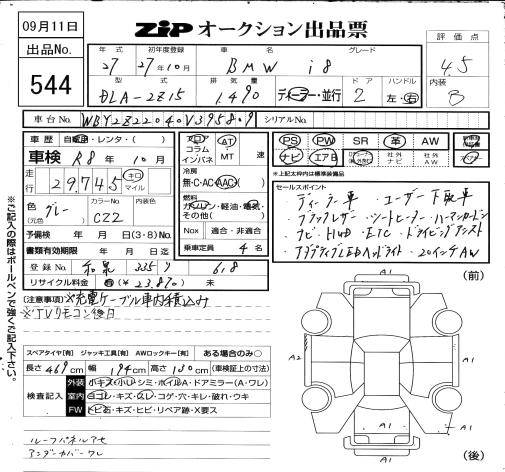 09月11日
ZIP オークション出品票
出品No.
544
評価点
4.5
内装
B
年式 初年度登録 車名 グレード
27 27年10月 BMW i8
型式 排気量 ドア ハンドル
DLA-2Z15 1,490 ディーラー・並行 2 左・右
車台No. WBY2Z22040V395809 シリアルNo.
車歴 自家用・レンタ・( )
車検 R8年10月
走行 29,745 キロ マイル
色 グレー (元色) カラーNo. C22 内装色
予備検 年 月 日(3・8)No.
書類有効期限 年 月 日迄
登録No. 和泉 335 618
リサイクル料金 済(¥23,870) 未
フロア コラム インパネ AT MT 速
冷房
無・C・AC・AAC
燃料
ガソリン・軽油・電気・その他( )
Nox 適合・非適合
乗車定員 4名
PS PW SR 革 AW
ナビ エアB 社外ナビ 社外AW
※上記太枠内は標準装備品
セールスポイント
ディーラー車 ユーザー下取車
ブラックレザー・シートヒーター・ハーマンカードン
ナビ・HUD・ETC・ドライビングアシスト
アダプティブLEDヘッドライト・20インチAW
(注意事項) ※充電ケーブル車内積込み
※TVリモコン後日
スペアタイヤ[有] ジャッキ工具[有] AWロックキー[有] ある場合のみ○
長さ 469cm 幅 194cm 高さ 130cm (車検証上の寸法)
検査記入
外装 小キズ・小U・シミ・ボイルA・ドアミラー(A・ワレ)
室内 ヨゴレ・キズ・スレ・コゲ・穴・キレ・破れ・ウキ
FW トビ石・キズ・ヒビ・リペア跡・X要ス
ルーフパネルアセ
アンダーカバーワレ
※ご記入の際はボールペンで強くご記入下さい。
(前)
A1
A1
A2
A1
A1
A1
(後)